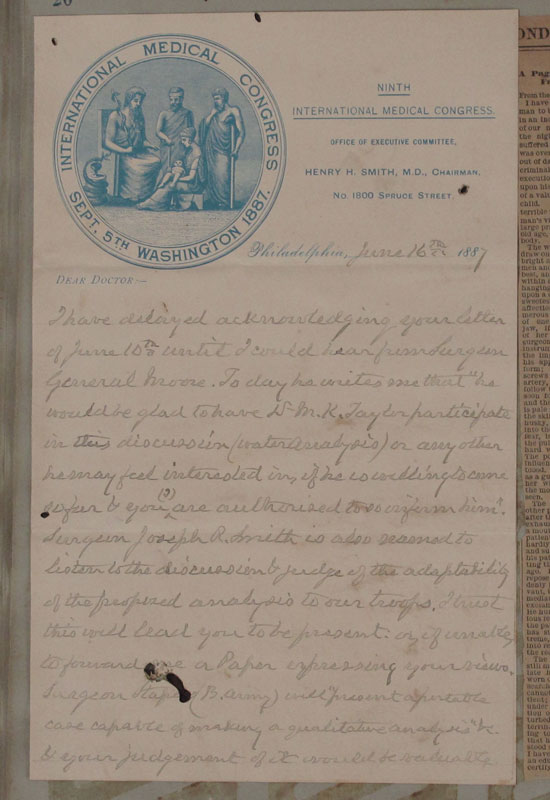 INTERNATIONAL MEDICAL CONGRESS
SEPT. 5TH WASHINGTON 1887.
NINTH
INTERNATIONAL MEDICAL CONGRESS.
OFFICE OF EXECUTIVE COMMITTEE,
HENRY H. SMITH, M.D., CHAIRMAN,
No. 1800 SPRUCE STREET.
Philadelphia, June 16th 1887
DEAR DOCTOR:—
I have delayed acknowledging your letter
of June 10th until I could hear from Surgeon
General Moore. To day he writes me that "he
would be glad to have Dr M. K. Taylor participate
in this discussion (water analysis) or any other
he may feel interested in, if he is willing to come
so far & you (?) are authorized to so inform him".
Surgeon Joseph R. Smith is also named to
listen to the discussion & judge of the adaptability
of the proposed analysis to our troops. I trust
this will lead you to be present. or if unable
to forward me a Paper expressing your views.
Surgeon (B. Army) will "present a portable
case capable of making a qualitative analysis" &c
& your judgement of it would be valuable